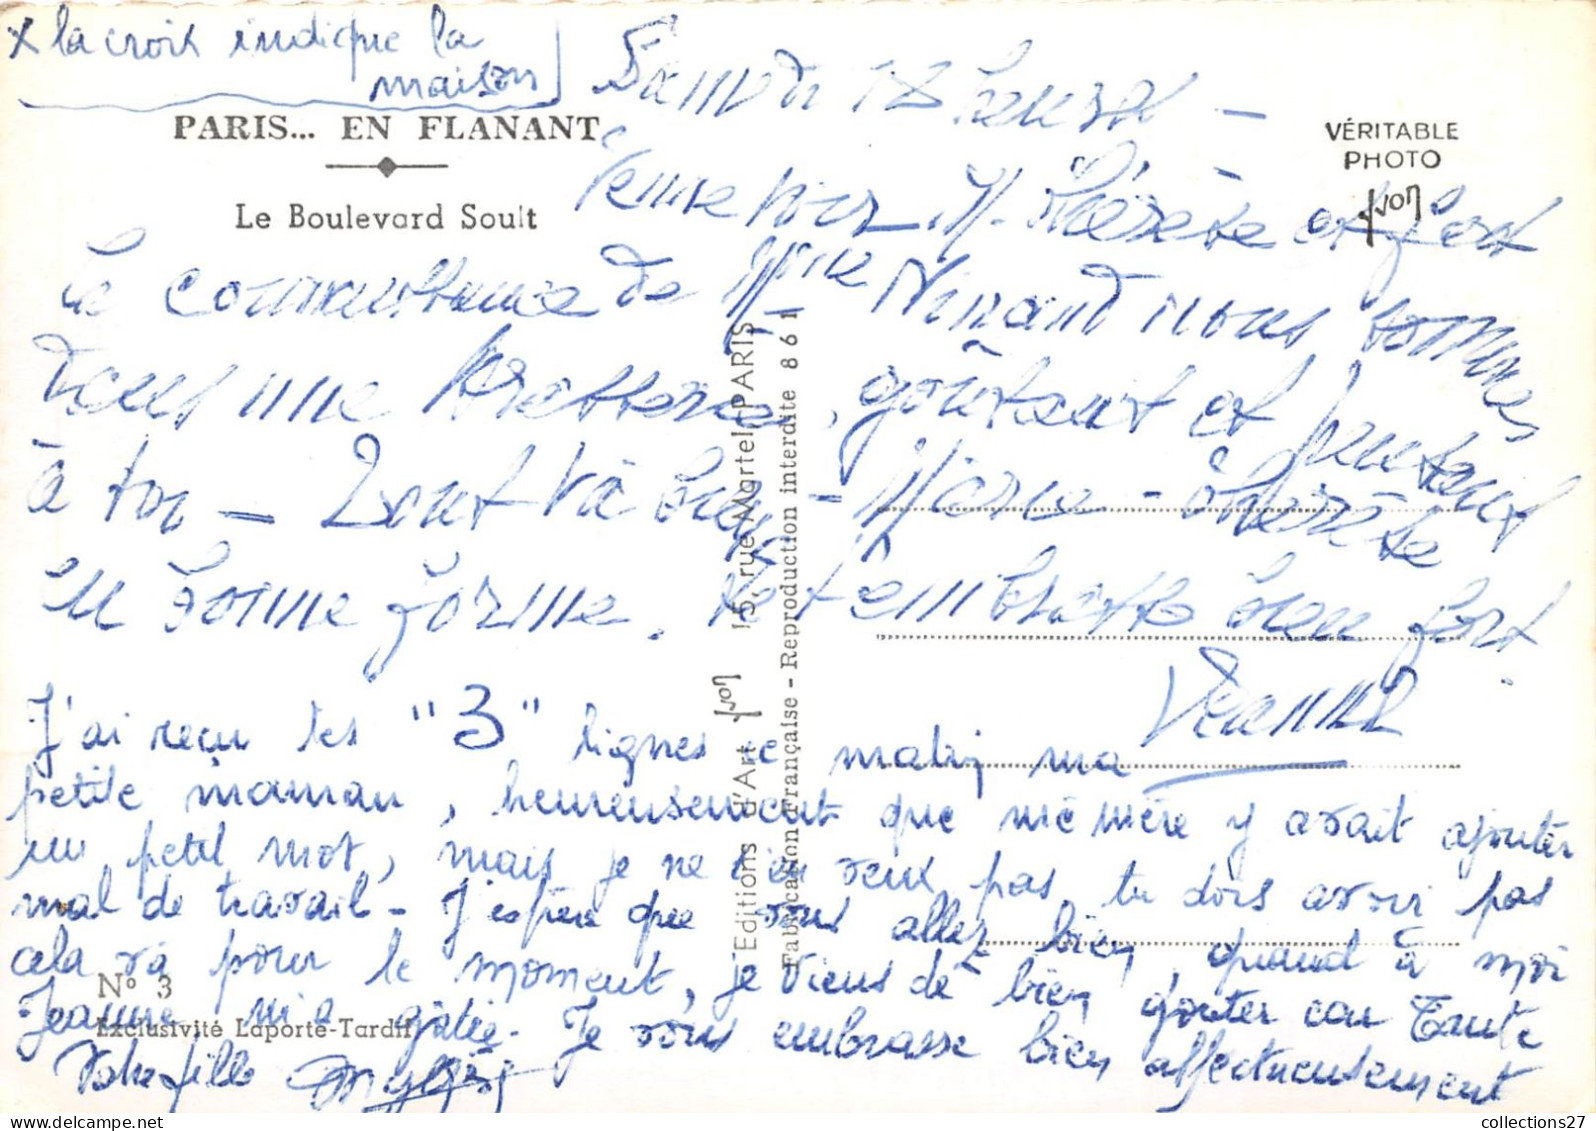 x la croix indique la
maison
PARIS... EN FLANANT
Le Boulevard Soult
VÉRITABLE
PHOTO
Yvon
Samedi 18 heures –
Venue voir M. Thérèse et fait
la connaissance de Mme nous sommes
dans une brasserie, goûtant et pensant
à toi – Tout va bien – Marie-Thérèse
en bonne forme. Je t'embrasse bien fort
J'ai reçu tes "3" lignes ce matin ma
petite maman, heureusement que mémère y avait ajouter
un petit mot, mais je ne t'en veux pas, tu dois avoir pas
mal de travail – J'espère que vous allez bien, quand à moi
cela va pour le moment, je viens de bien goûter car Tante
Jeanne m'a gâtée. Je vous embrasse bien affectueusement
Votre fille
Editions d'Art Yvon 15, rue Martel, PARIS
Fabrication Française - Reproduction interdite 861
N° 3
Exclusivité Laporte-Tardif
collections27